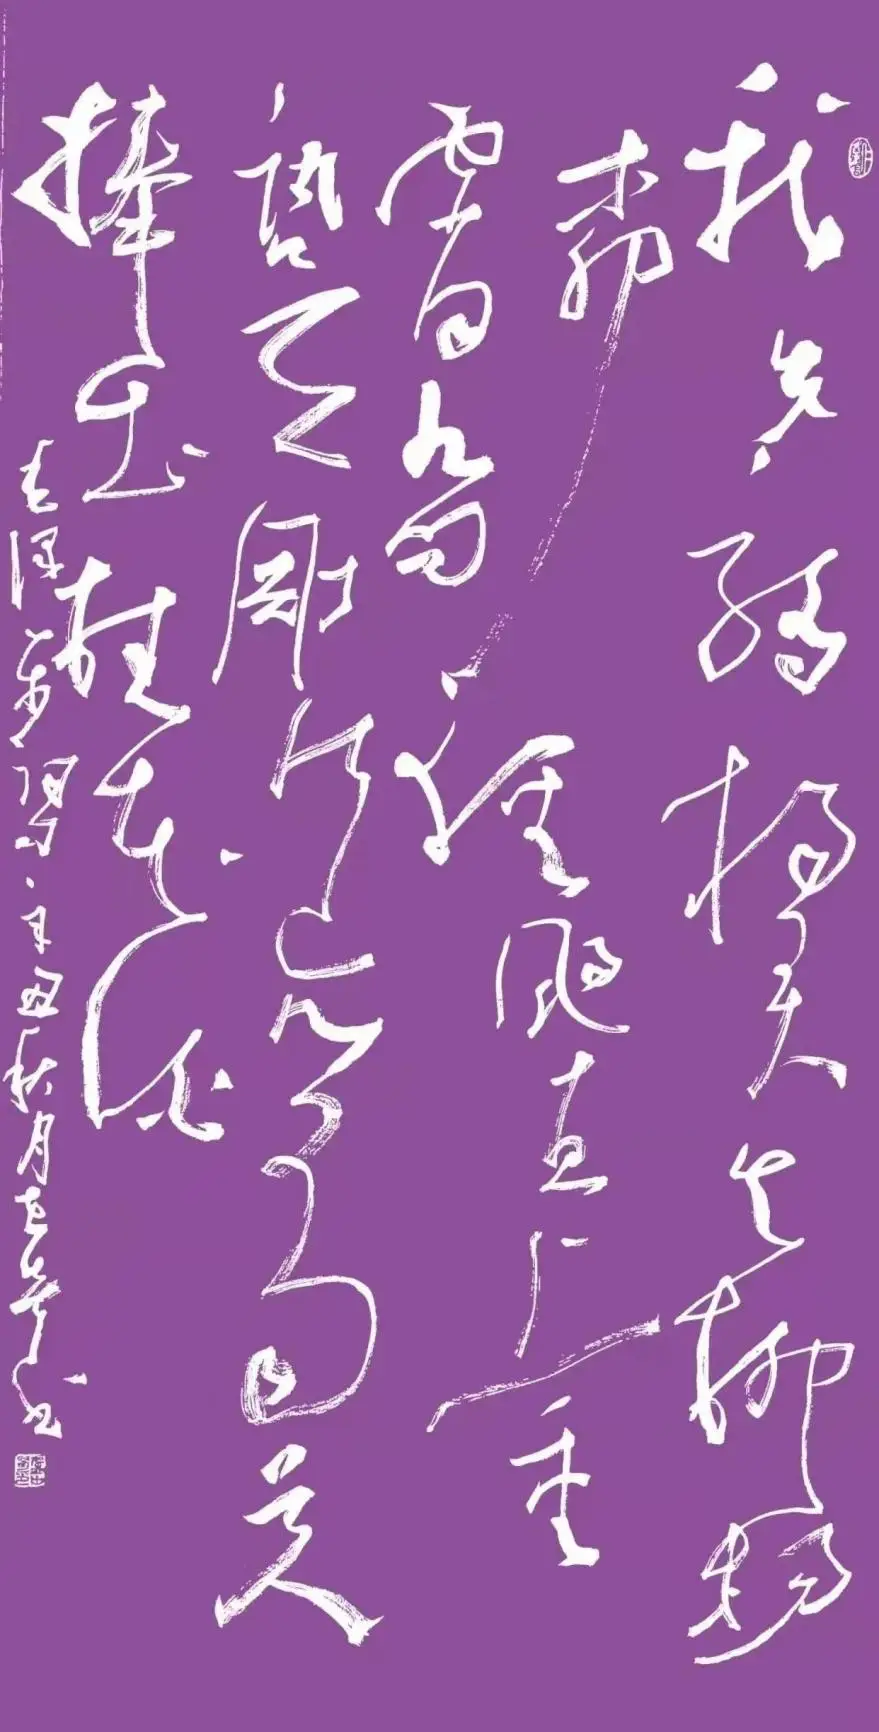 我失骄杨君失柳杨
柳轻飏直上重
霄九问
讯吴刚何所有吴刚
捧出桂花酒
毛泽东词辛丑秋月
书